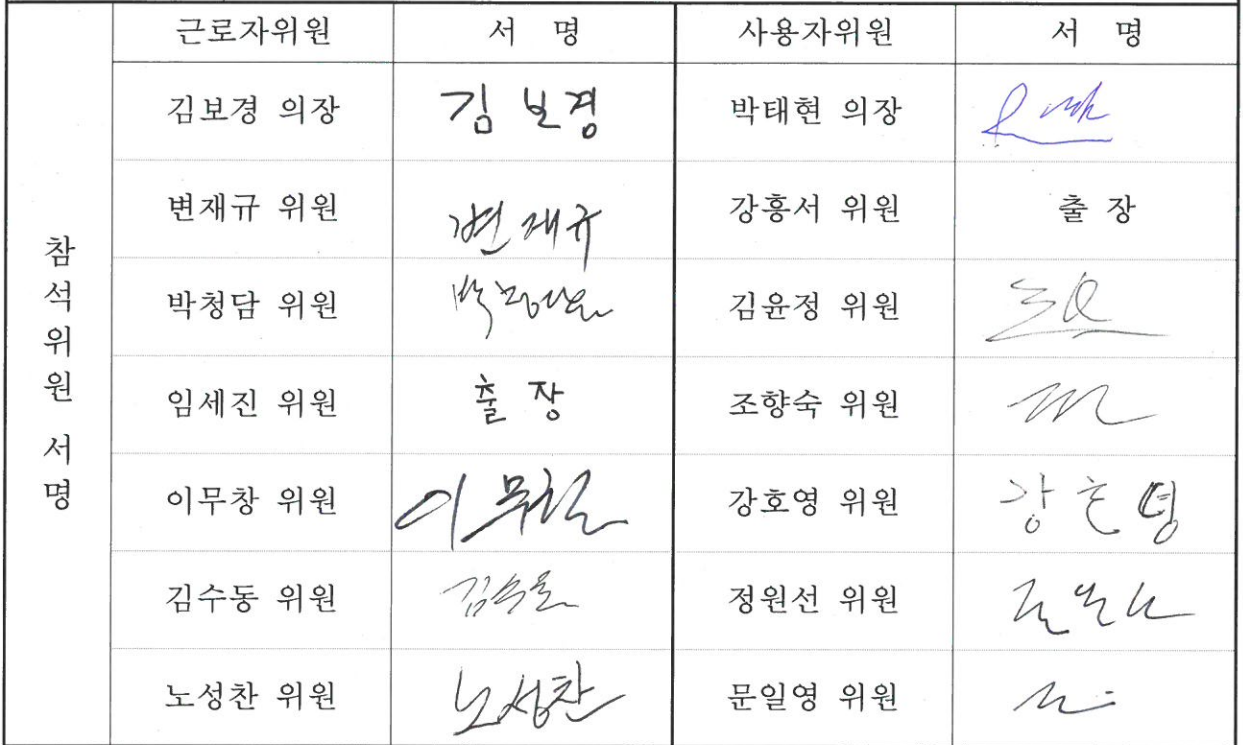 참석위원 서명
근로자위원 서 명 사용자위원 서 명
김보경 의장 김보경 박태현 의장
변재규 위원 변재규 강흥서 위원 출 장
박청담 위원 김윤정 위원
임세진 위원 출 장 조향숙 위원
이무창 위원 이무창 강호영 위원 강호영
김수동 위원 김수동 정원선 위원
노성찬 위원 노성찬 문일영 위원